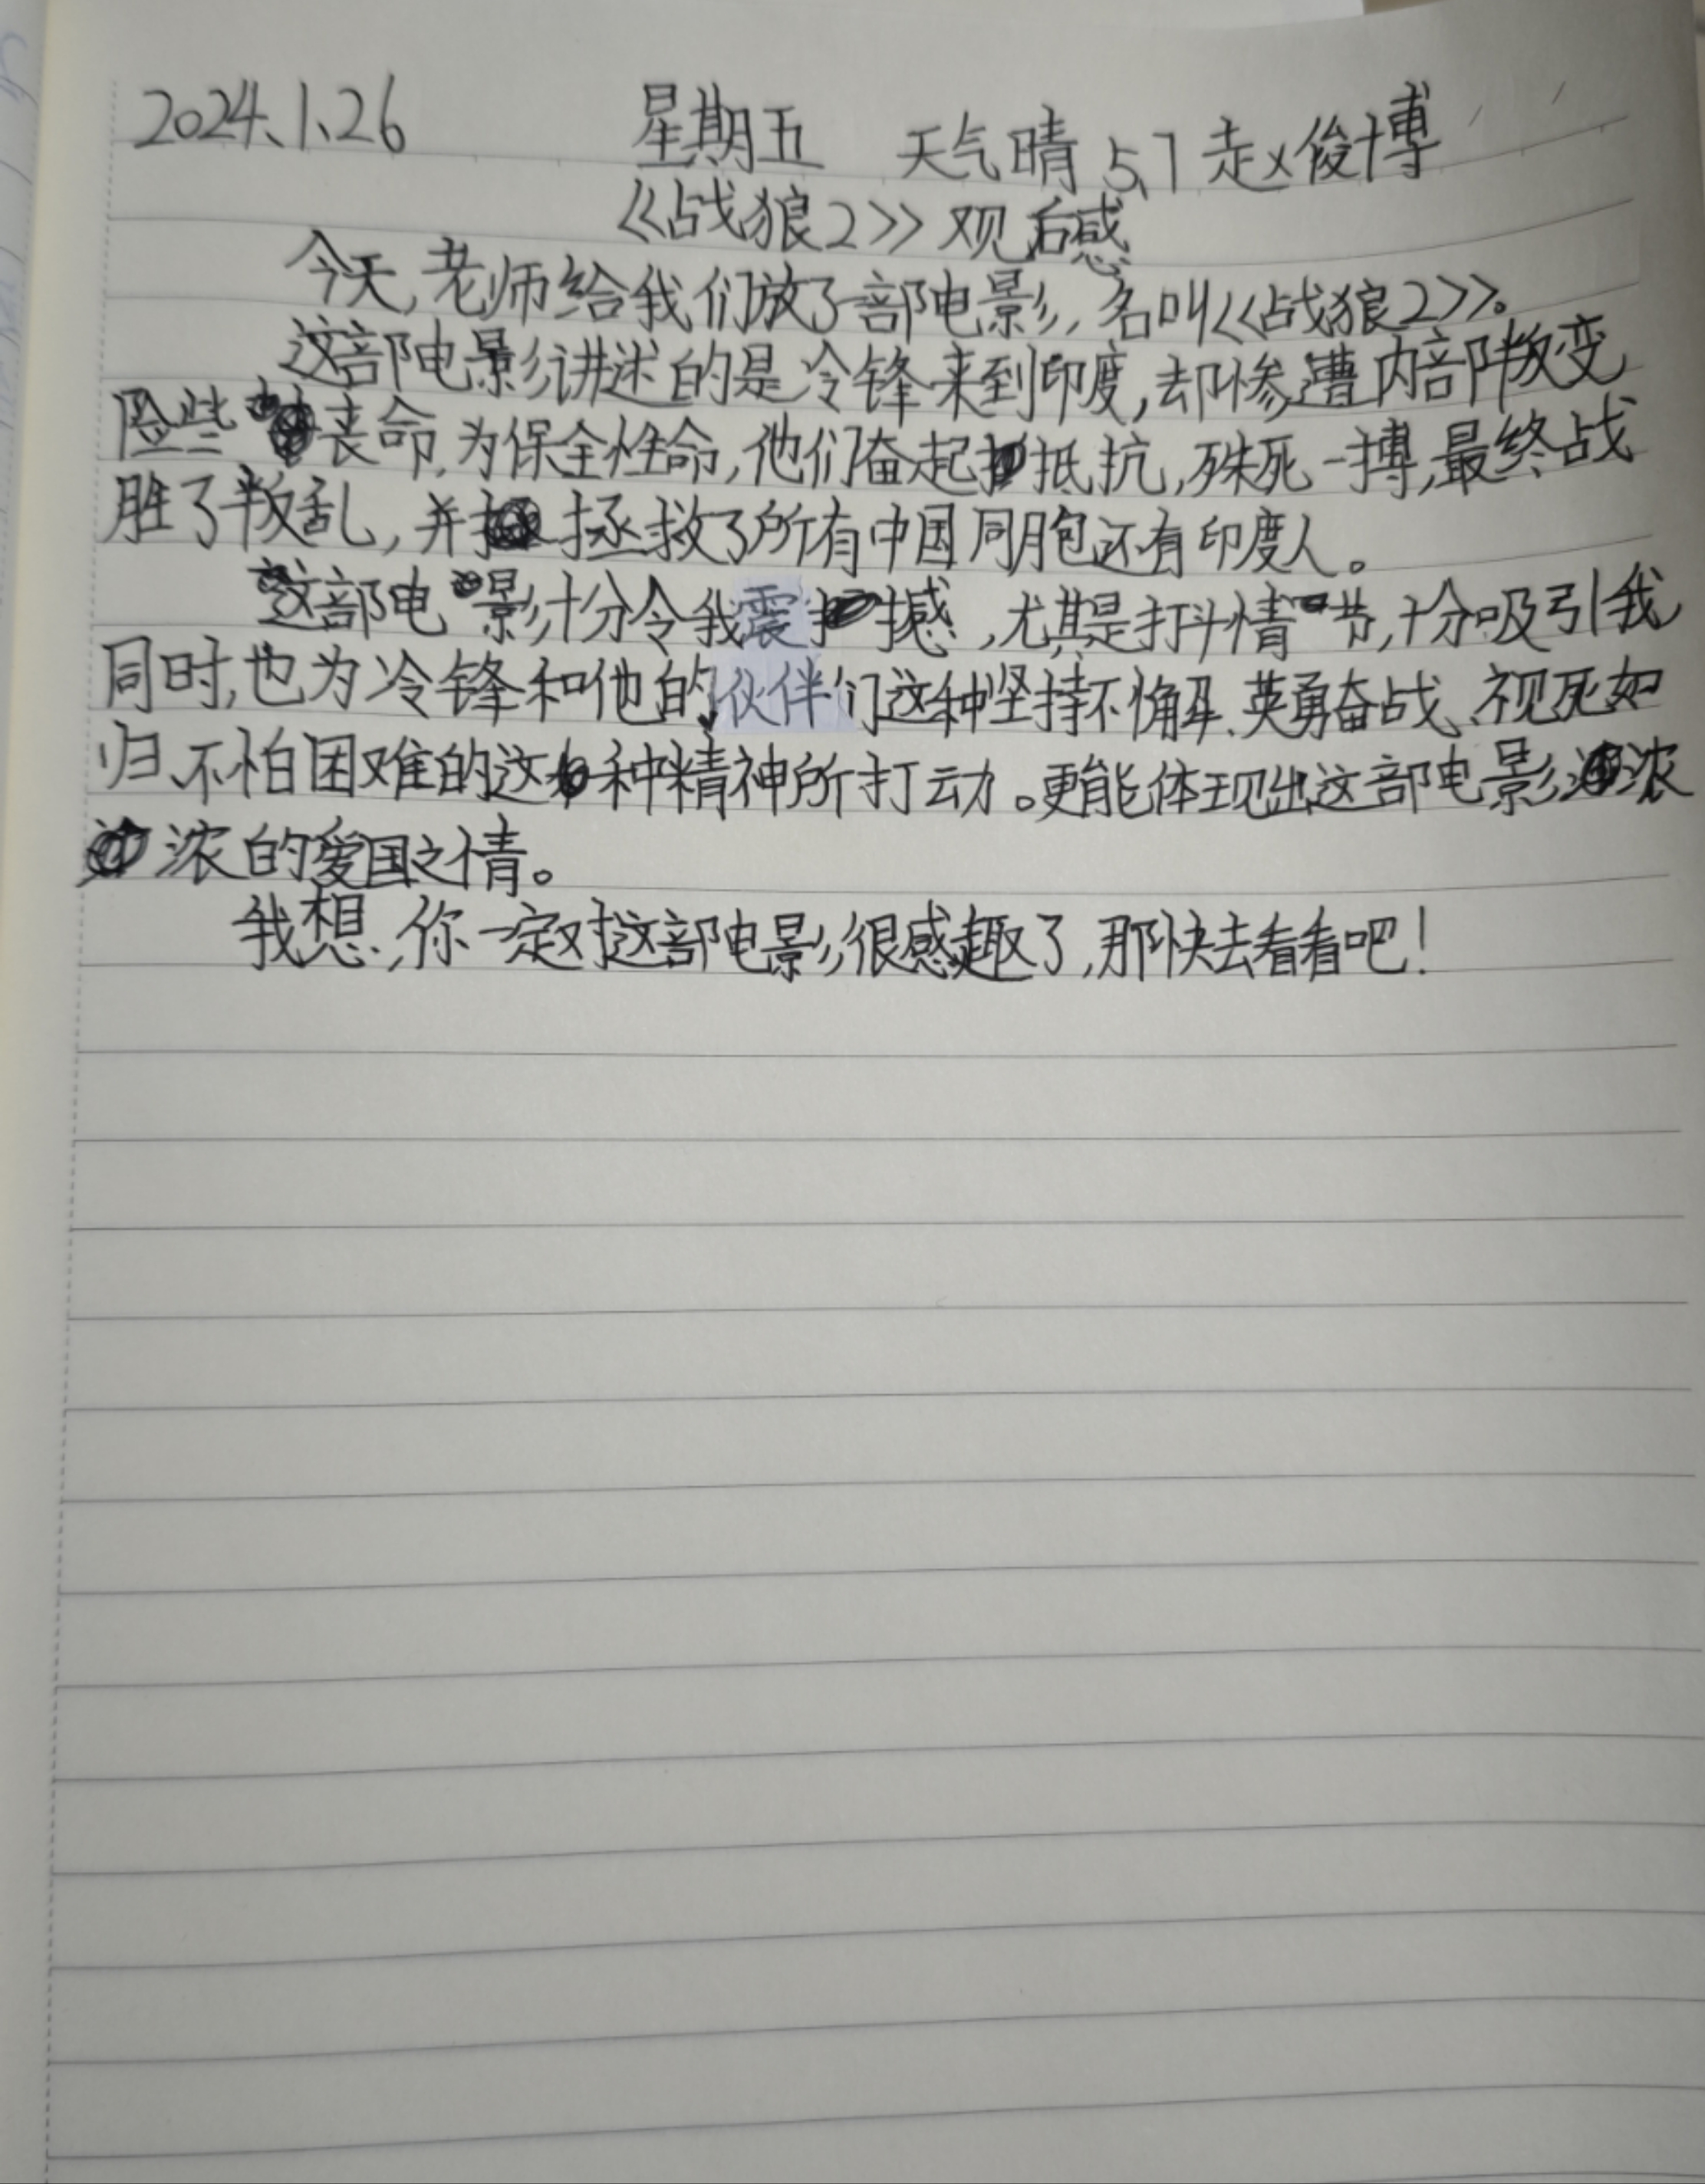 2024.1.26 星期五 天气晴 5.7 赵俊博
《战狼2》观后感
今天,老师给我们放了一部电影,名叫《战狼2》。
这部电影讲述的是冷锋来到印度,却惨遭内部叛变
险些丧命,为保全性命,他们奋起抵抗,殊死一搏,最终战
胜了叛乱,并拯救了所有中国同胞还有印度人。
这部电影十分令我震撼,尤其是打斗情节,十分吸引我
同时,也为冷锋和他的伙伴们这种坚持不懈、英勇奋战、视死如
归、不怕困难的这种精神所打动。更能体现出这部电影浓
浓的爱国之情。
我想,你一定对这部电影很感趣了,那快去看看吧!